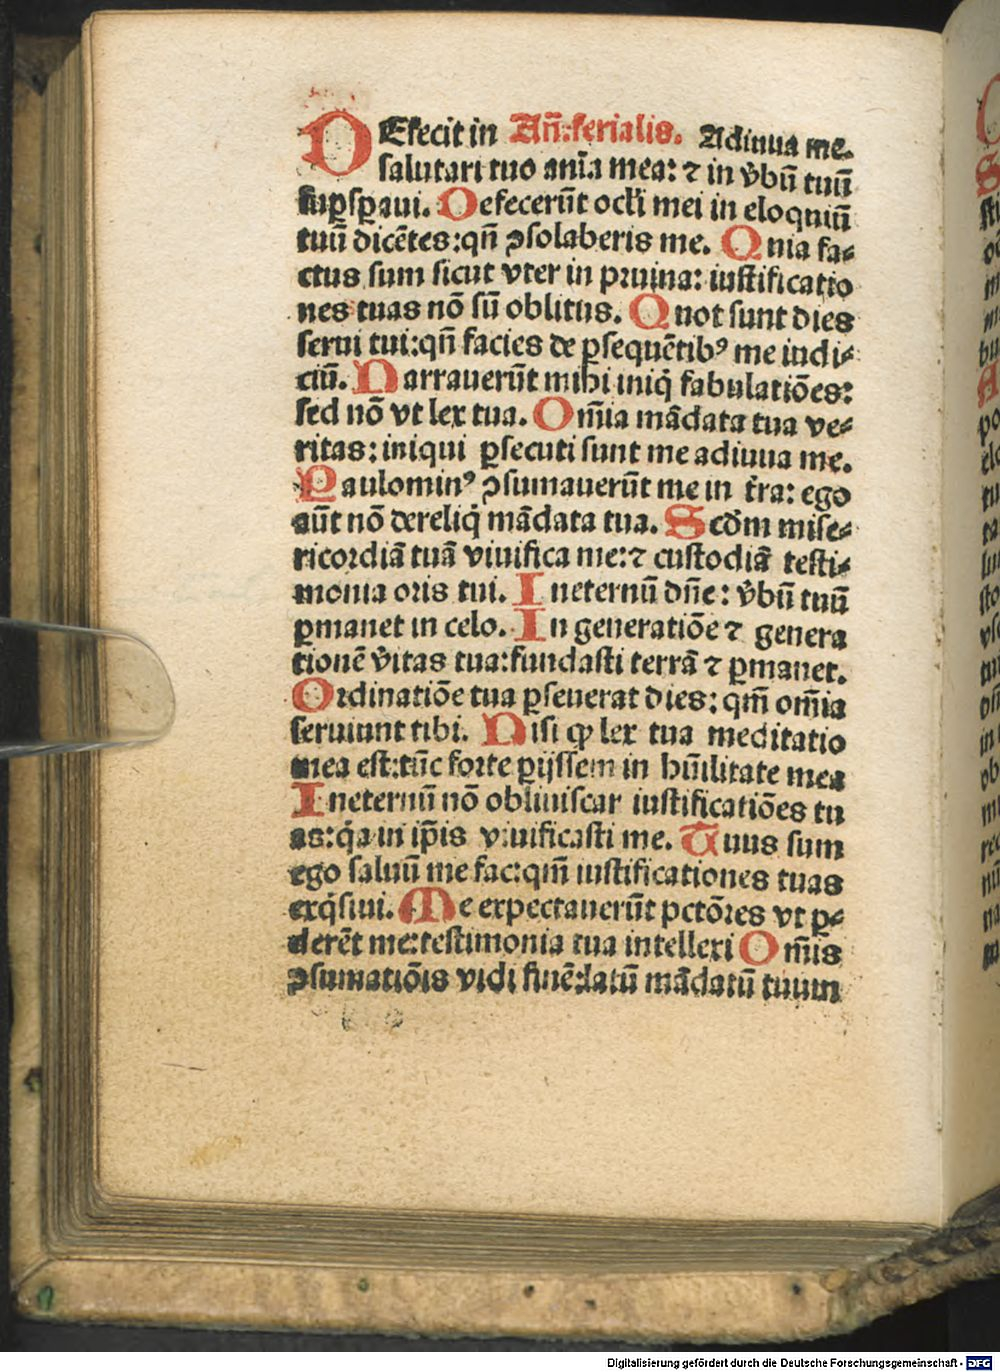 DEfecit in Añ:ferialis. Adiuua me.
salutari tuo aīa mea: ⁊ in v̄bū tuū
supsp̱aui. Defecerūt ocl̓i mei in eloquiū
tuū dicētes:qn̄ ꝯsolaberis me. Quia fa⸗
ctus sum sicut vter in pruina: iustificatio
nes tuas nō sū oblitus. Quot sunt dies
serui tui:qn̄ facies de ꝑsequētibꝰ me iudi⸗
ciū. Narrauerūt mihi iniq̇ fabulatiōes:
sed nō vt lex tua. Om̄ia mādata tua ve⸗
ritas: iniqui ꝑsecuti sunt me adiuua me.
Paulominꝰ ꝯsumauerūt me in t̄ra: ego
aūt nō dereliq̇ mādata tua. Secd̄m mise⸗
ricordiā tuā viuifica me:⁊ custodiā testi⸗
monia oris tui. Ineternū dn̄e: v̄bū tuū
ꝑmanet in celo. In generatiōe ⁊ genera
tionē v̄itas tua:fundasti terrā ⁊ ꝑmanet.
Ordinatiōe tua ꝑseuerat dies: qm̄ om̄ia
seruiunt tibi. Nisi ꝙ lex tua meditatio
mea est:tūc forte ꝑijssem in hūilitate mea
Ineternū nō obliuiscar iustificatiōes tu
as:q̇a in ip̄is viuificasti me. Tuus sum
ego saluū me fac:qm̄ iustificationes tuas
exq̇siui. Me expectauerūt pctōres vt ꝑ⸗
derēt me:testimonia tua intellexi Om̄is
ꝯsumatiōis vidi finē:latū mādatū tuum
Digitalisierung gefördert durch die Deutsche Forschungsgemeinschaft - DFG